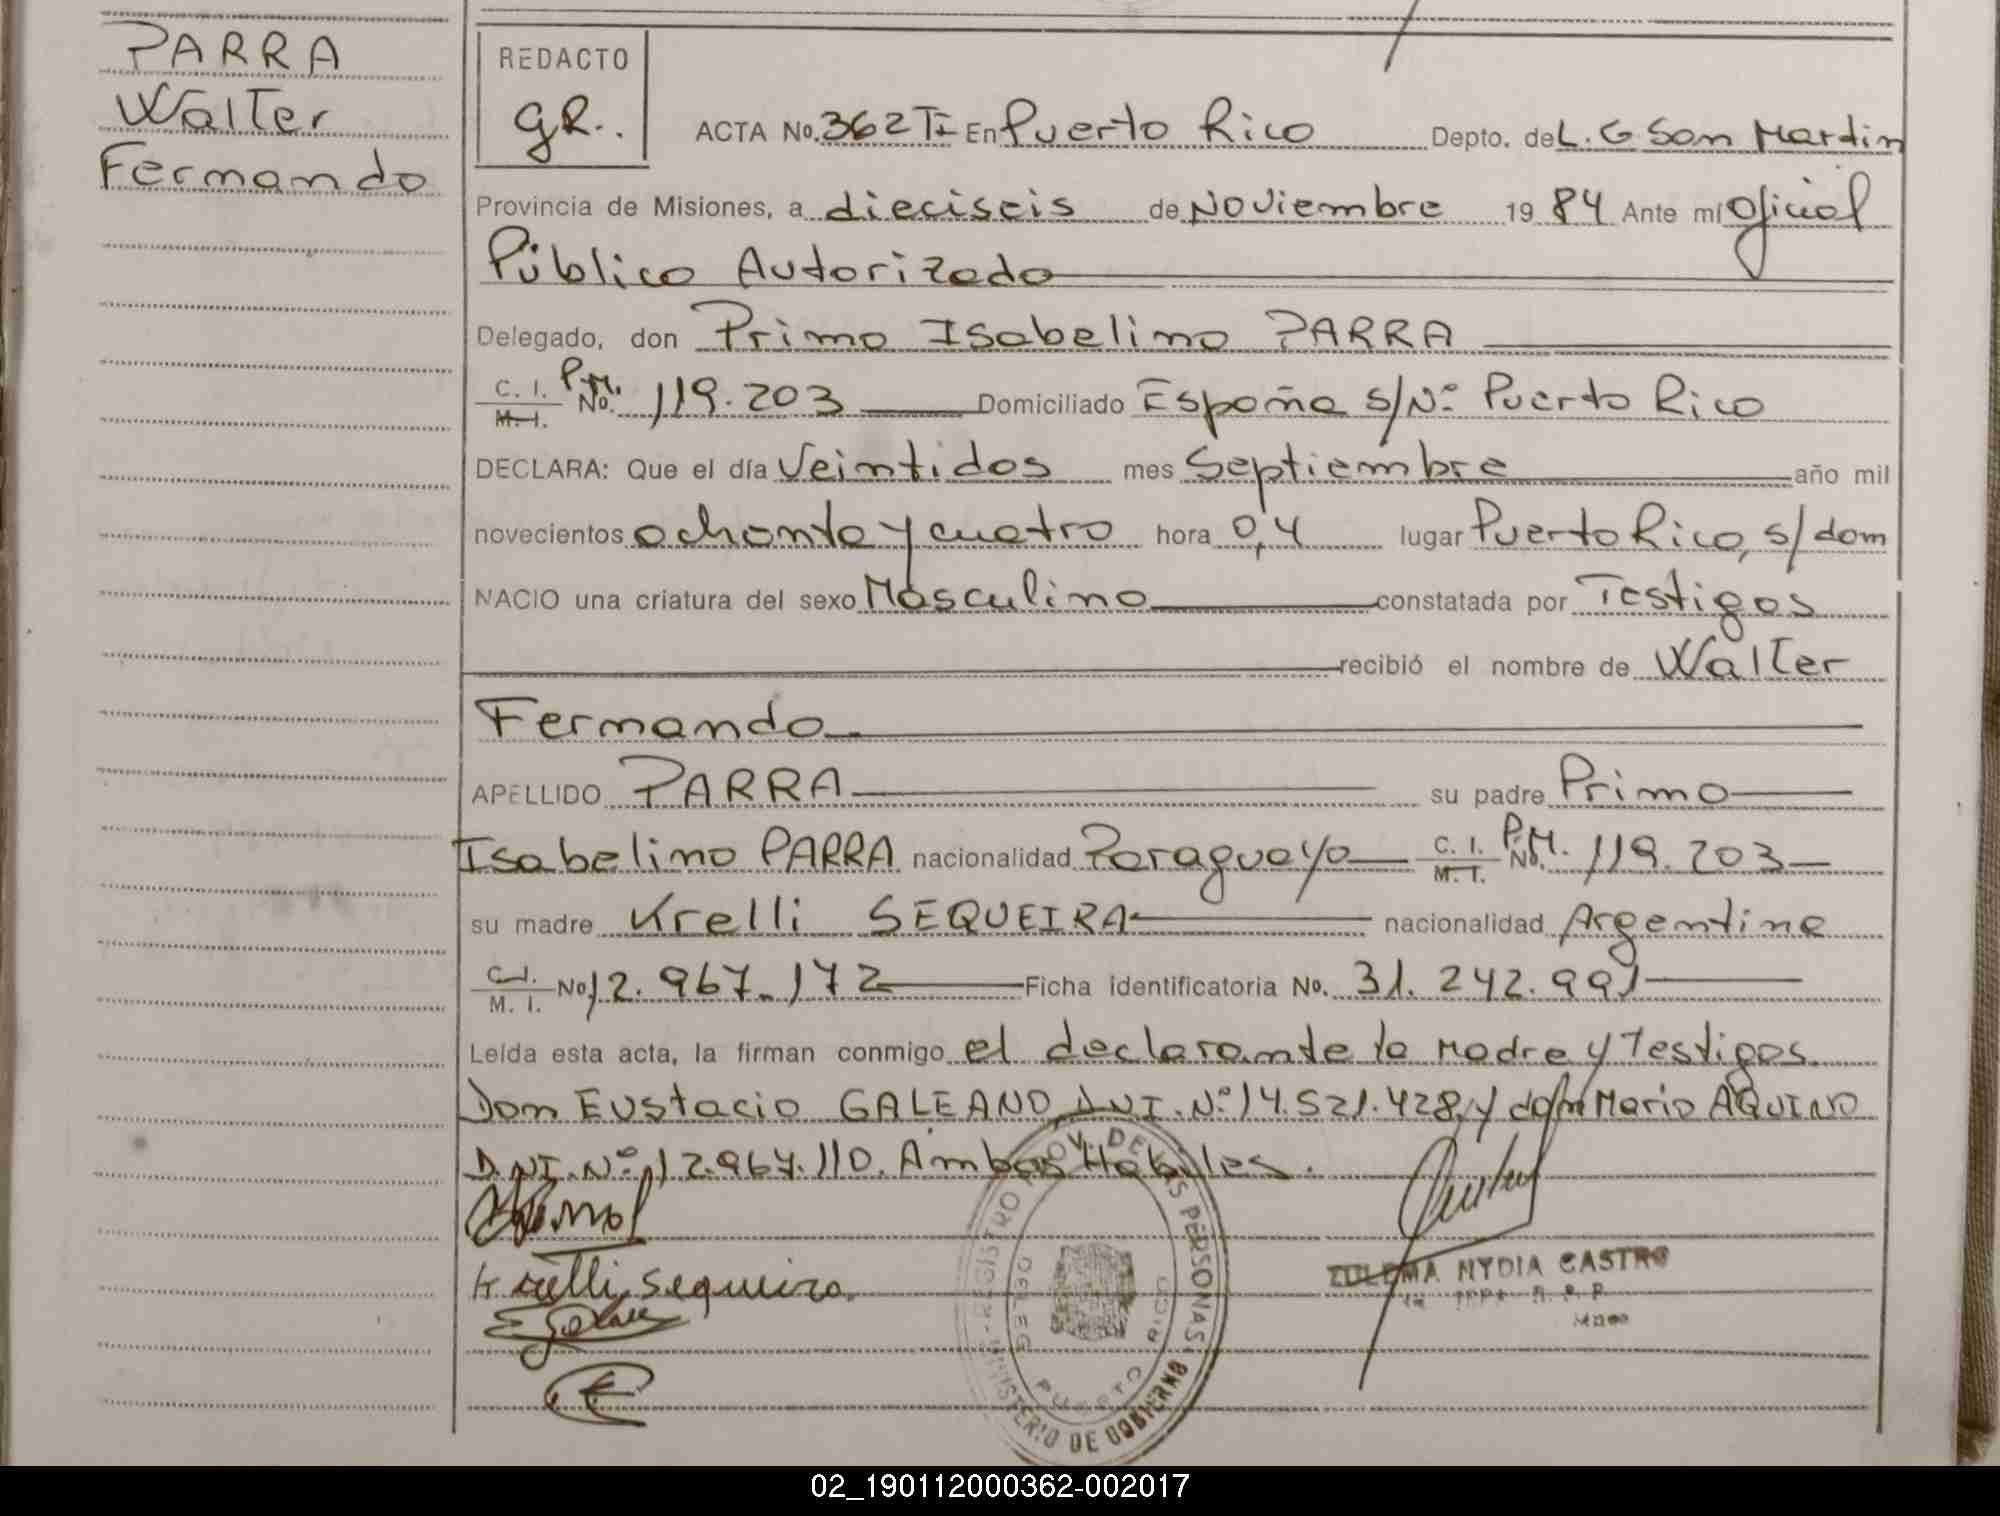 PARRA
Walter
Fernando
REDACTO
GR..
ACTA No. 362 TI En Puerto Rico Depto. de L. G San Martin
Provincia de Misiones, a dieciseis de Noviembre 19 84 Ante mí Oficial
Público Autorizado
Delegado, don Primo Isabelino PARRA
C. I. M. I. P.M. No. 119.203 Domiciliado España s/Nº Puerto Rico
DECLARA: Que el día Veintidos mes Septiembre año mil
novecientos ochenta y cuatro hora 0,4 lugar Puerto Rico, s/dom
NACIO una criatura del sexo Masculino constatada por Testigos
recibió el nombre de Walter
Fernando
APELLIDO PARRA su padre Primo
Isabelino PARRA nacionalidad Paraguayo C. I. M. I. P.M. No. 119.203
su madre Krelli SEQUEIRA nacionalidad Argentina
C. I. M. I. No. 12.967.172 Ficha identificatoria No. 31.242.991
Leída esta acta, la firman conmigo el declarante la Madre y Testigos
Don EUstacio GALEANO, D.N.I. Nº 14.521.428, y don Mario AQUINO
D.NI. Nº 12.967.110. Ambos Habiles.
Krelli Sequeira
REGISTRO PROV. DE LAS PERSONAS
MINISTERIO DE GOBIERNO
DELEG
PUERTO RICO
ZULEMA NYDIA CASTRO
02_190112000362-002017